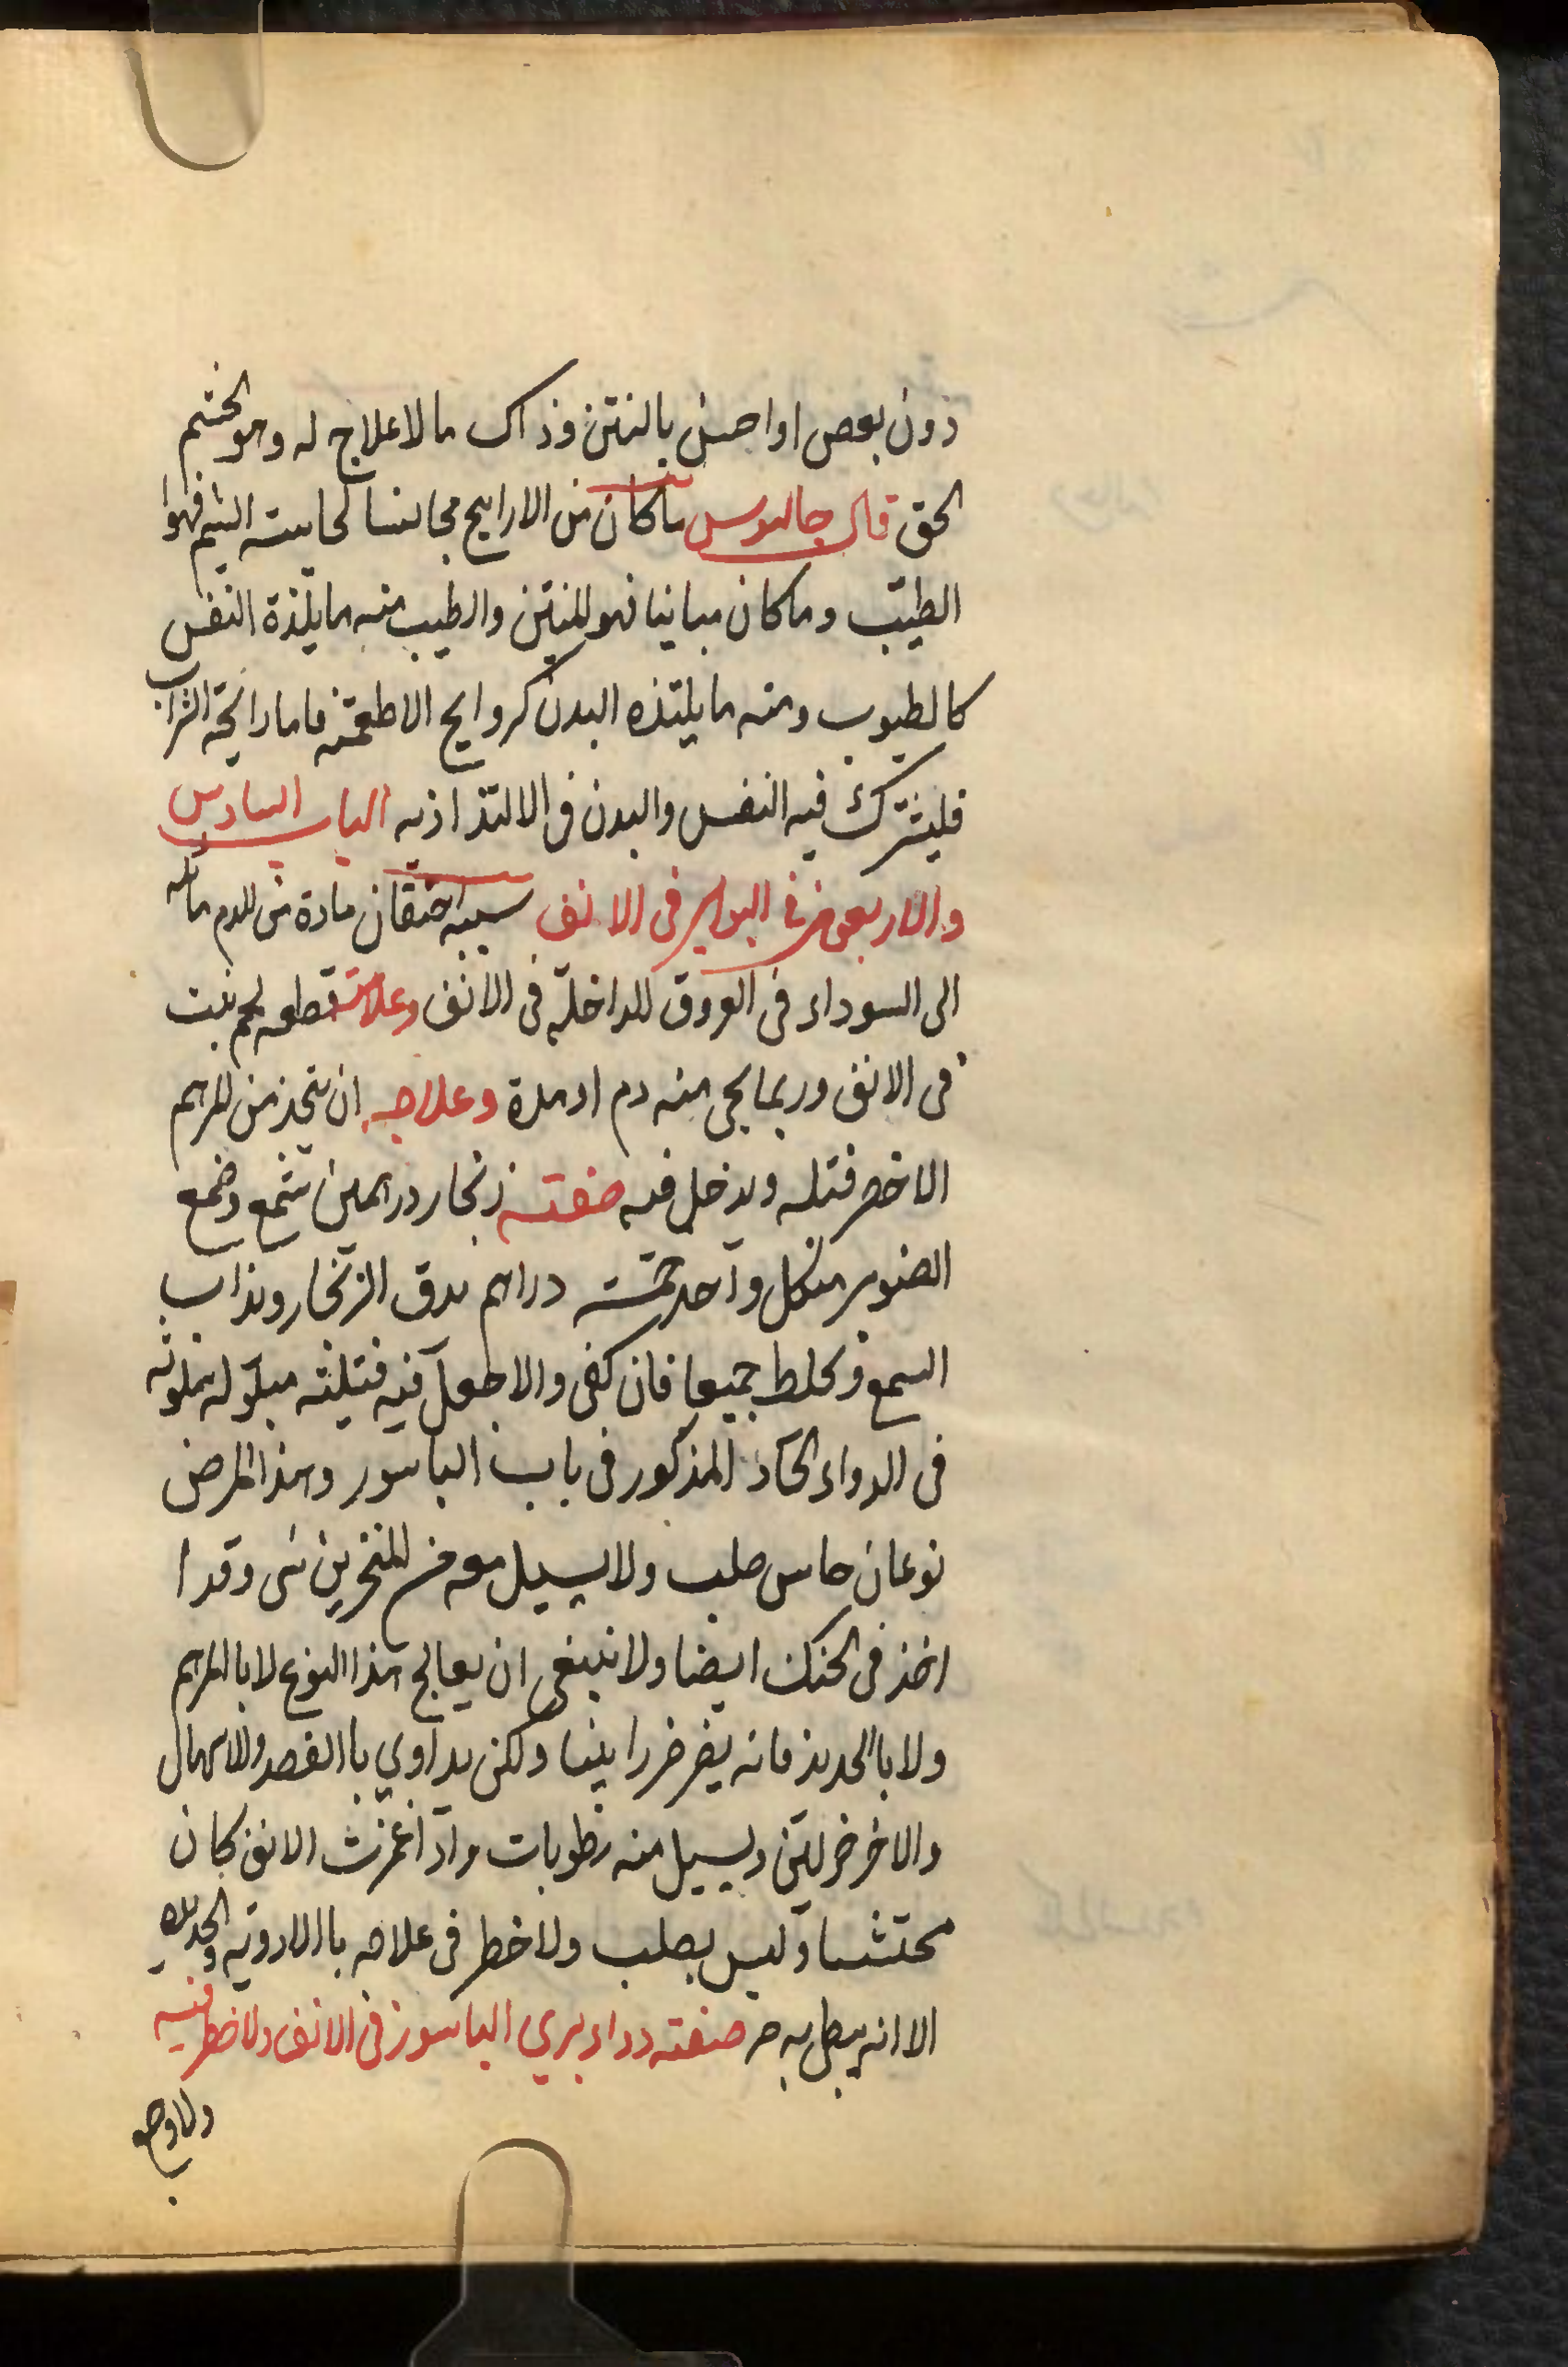 دون بعض او احس بالنتن وذاك ما لا علاج له وهو الخشم
الحق قال جالينوس ما كان من الاراييح مجانسا لحاسته الشم فهوا
الطيب وما كان مباينا فهو المنتن والطيب منه ما يلتذة النفس
كالطيوب ومنه ما يلتذه البدن كروايح الاطعمة فاما رائحة الشراب
فليشترك فيه النفس والبدن فى الالتذاذ به الباب السادس
والاربعون فى البواسير فى الانف سببه احتقان مادة من الدم مائله
الى السوداء فى العروق الداخلة فى الانف وعلامته قطعه لحم نبت
فى الانف وربما يجى منه دم او مدة وعلاجه ان يتخذ من المرهم
الاخضر فتله ويدخل فيه صفته زنجار درهمين شمع وضمع
الصنوبر من كل واحد خمسة دراهم يدق الزنجار ويذاب
الشمع ويخلط جميعا فان كفى والا جعل فيه فتيلته مبلوله ملوثه
فى الدواء الحاد المذكور فى باب الباسور وهذا المرض
نوعان جاس صلب ولا يسيل معه من المنخرين شى وقد ا
اخذ فى الحنك ايضا ولا ينبغى ان يعالج هذا النوع لا بالمرهم
ولا باالحديد فانه يضر ضررا بينا ولكن يداوي باالفصد والاسهال
والاخر لين ويسيل منه رطوبات واذا غمزت الانف كان
محتشا وليس بصلب ولا خطر فى علاجه باالادوية والحديد
الا انه يبطى به صفته دواء يبري الباسور فى الانف ولا خطر فيه
ولا وجع